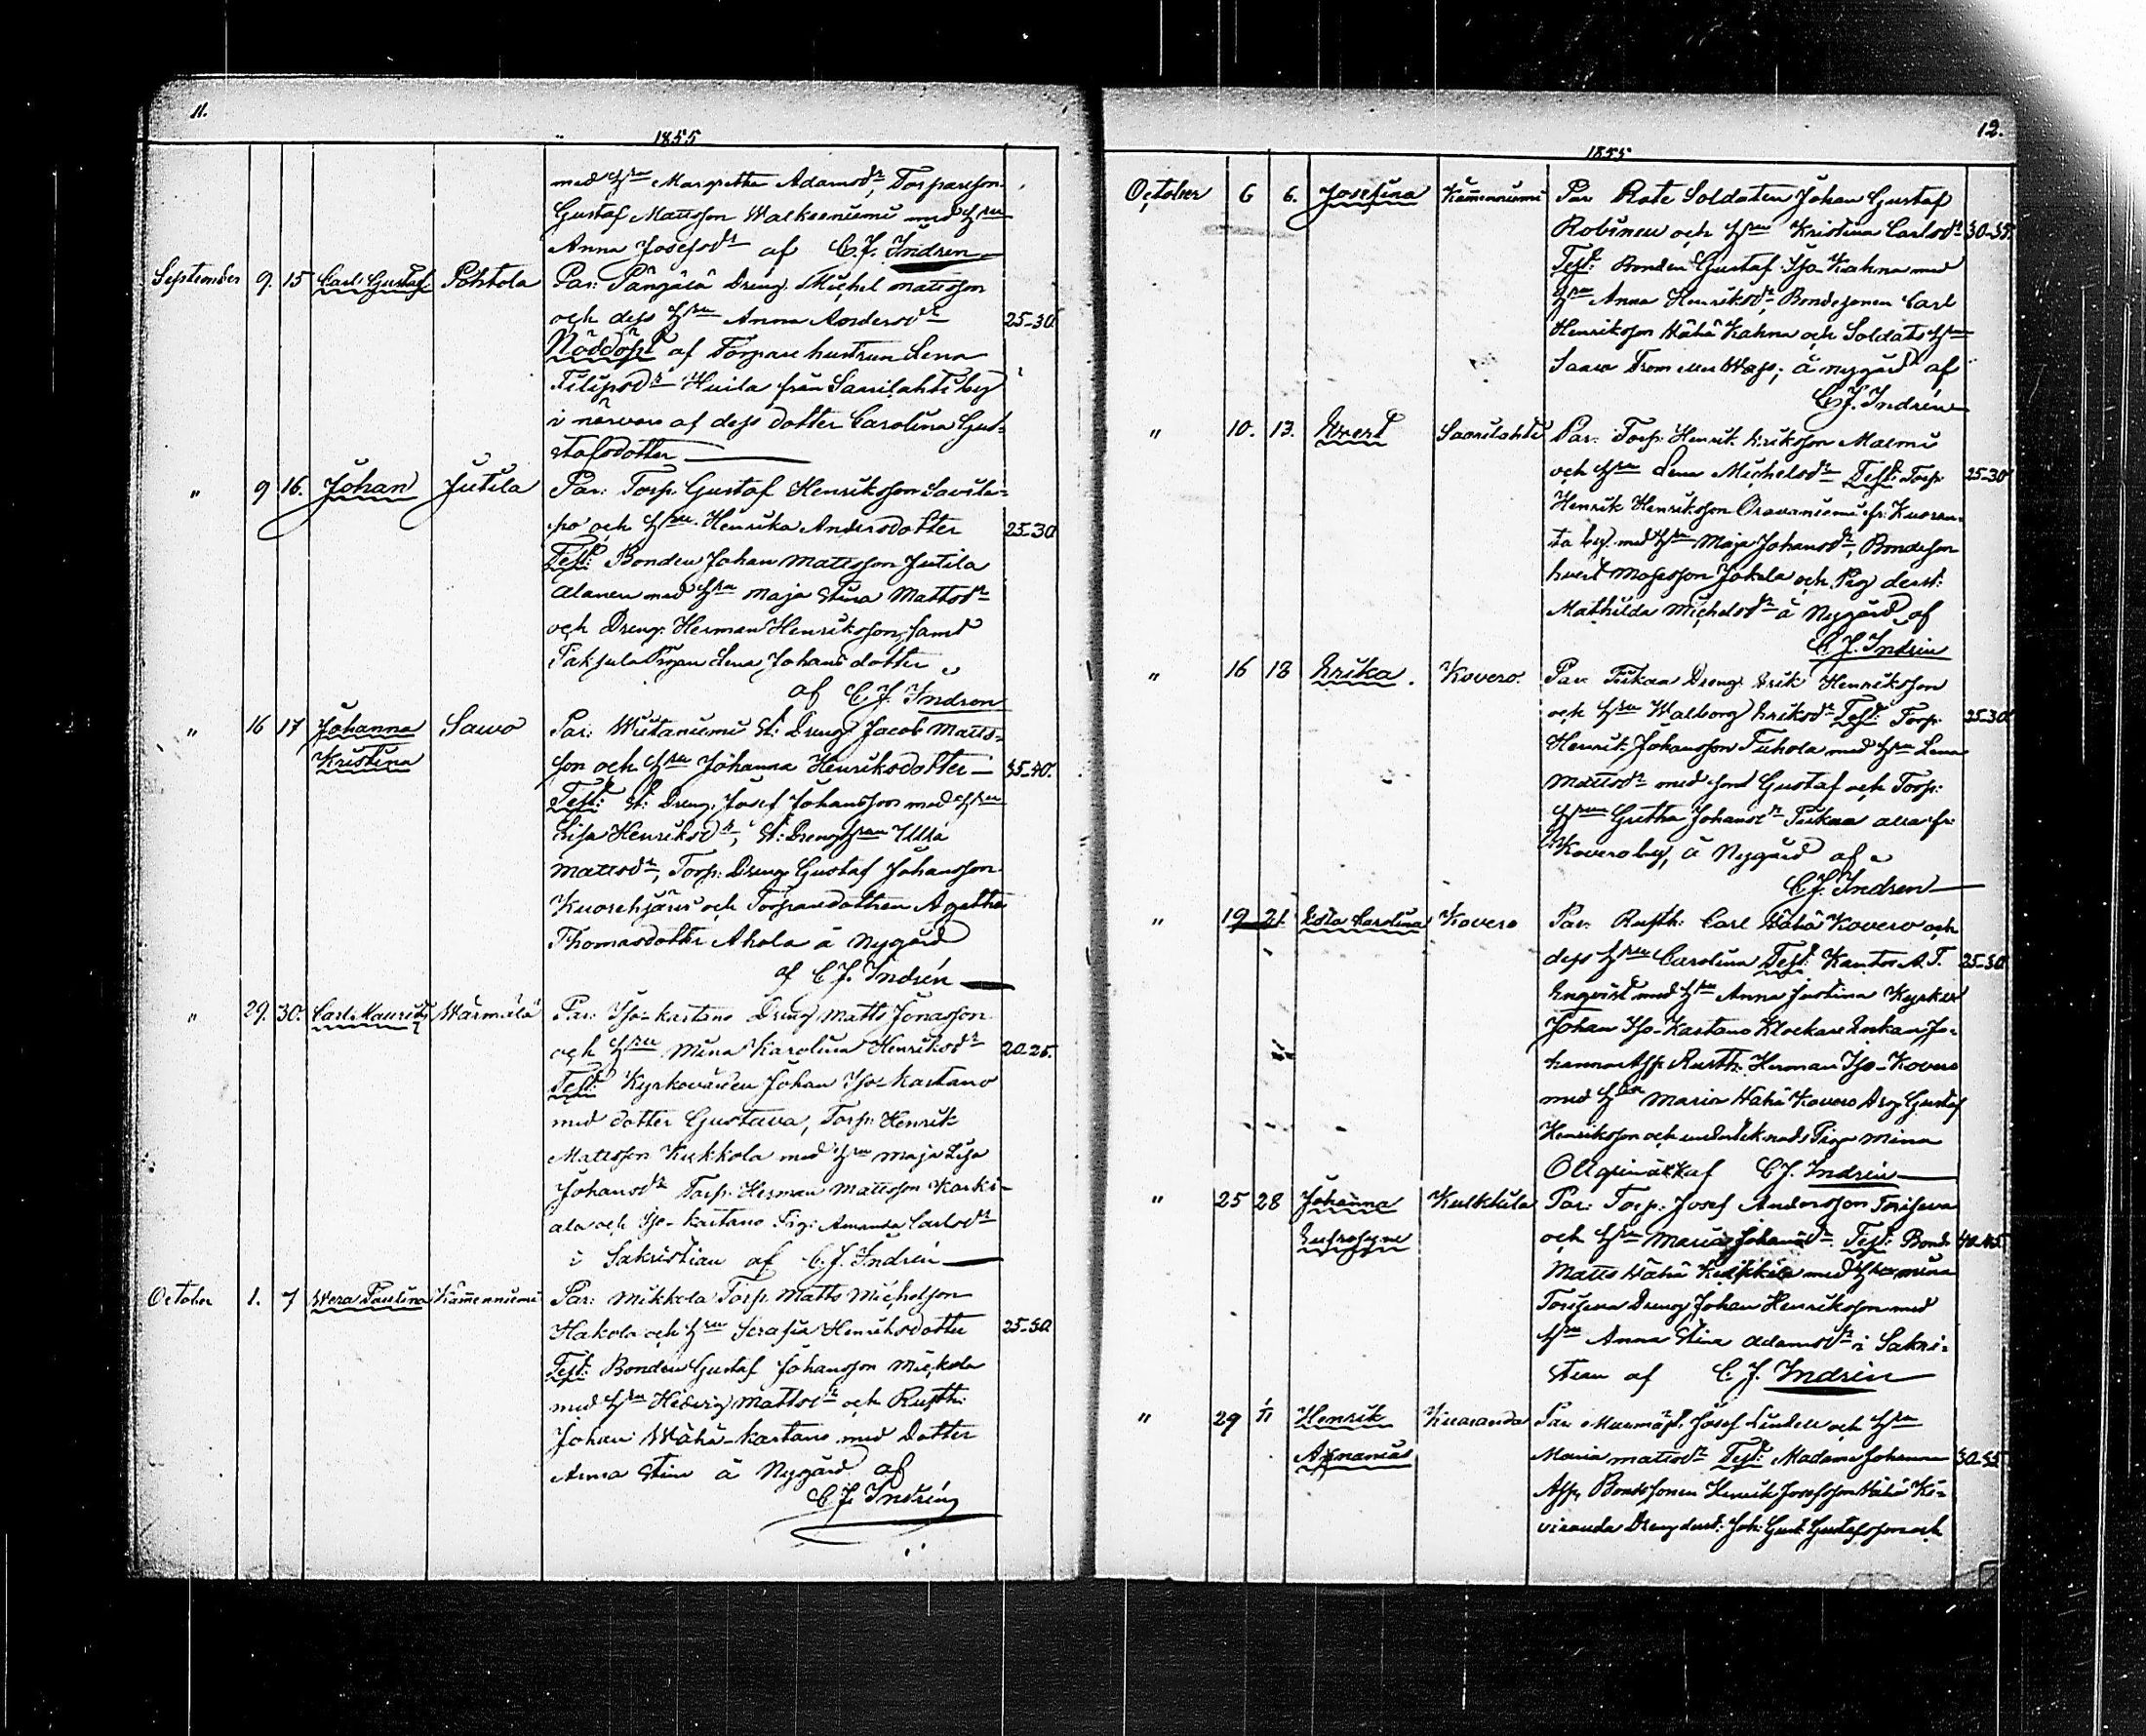 11.
1855
med Hru Margretha Adamsdr, Torpareson
Gustaf Mattsson Walkeeniemi med Hru
Anna Josefsdr af C. J. Indrén
September 9. 15 Carl Gustaf Pohtola Par: Pångälä Dreng Michel Mattsson
och dess Hru Anna Andersdr 25-30
Nöddöpt af Torpare hustrun Lena
Filipsdr Huila från Saarilahti by
i närvaro af dess dotter Carolina Gus-
stafsdotter
" 9 16. Johan Jutila Par: Torp. Gustaf Henriksson Savila-
po och Hru Henrika Andersdotter 25-30
Test: Bonden Johan Mattsson Jutila
Alanen med Hru Maja Stina Mattsdr
och Dreng. Herman Henriksson, samt
Paksula Pigan Lena Johansdotter
af C. J. Indren
" 16 17 Johanna Sawo Par: Wiitaniemi St: Dreng Jacob Matts-
Kristina son och Hru Johanna Henriksdotter 35-40.
Test: St: Dreng. Josef Johansson med Hru
Lisa Henriksdr, St: Dreng Hru Ulla
Mattsdr, Torp: Dreng Gustaf Johansson
Kuorehjärvi och Torparedottren Agatha
Thomasdotter Ahola å Nygård
af C. J. Indrén
" 29. 30. Carl Mauritz Wärmälä Par: Iso-Kartano Dreng Matts Jonasson
och Hru Mina Karolina Henriksdr 20-25.
Test: Kyrkovärden Johan Iso-Kartano
med dotter Gustava, Torp: Henrik
Mattsson Kukkola med Hru Maja Lisa
Johansdr Torp. Herman Mattsson Karki-
ala och Iso-Kartano Pig: Amanda Carlsdr
i Sakristian af C. J. Indrén
October 1. 7 Wera Paulina Kämenniemi Par: Mikkola Torp. Matts Michelsson
Hakola och Hru Serafia Henriksdotter 25-30
Test: Bonden Gustaf Johansson Mickola
med Hru Hedvig Mattsdr och Rusth:
Johan Wähä-Kartano med Dotter
Anna Stina å Nygård af
C. J. Indrén
12.
1855
October 6 6. Josefina Kämenniemi Par: Rote Soldaten Johan Gustaf
Robinen och Hru Kristina Carlsdr 30-35.
Test: Bonden Gustaf Iso Kahna med
Hru Anna Henriksdr, Bondesonen Carl
Henriksson Wähä Kahna och Soldats Hru
å nygård af
C. J. Indrén
" 10. 13. Evert Saarilahti Par: Torp: Henrik Eriksson Maemi
och Hru Lena Michelsdr Test: Torp. 25-30
Henrik Henriksson Oravaniemi fr: Kuoran-
ta by. med Hru Maja Johansdr, Bondeson
Evert Mosesson Jokela och Pig derst:
Mathilda Michelsdr å Nygård af
C. J. Indrén
" 16 18 Erika. Kovero. Par: Dreng Erik Henriksson
och Hru Walborg Eriksdr Test: Torp. 25-30.
Henrik Johansson Tuhola med Hru Lena
Mattsdr med son Gustaf och Torp:
Hru Gretha Johansdr alla fr:
Kovero by, å Nygård af
C. J. Indrén
" 19 21. Edla Carolina Kovero Par: Rusth: Carl Wähä Kovero och
dess Hru Carolina Test: Kantor A. T. 25-30.
Enqvist med Hru Anna Justina Kyrkv
Johan Iso-Kartano Klockare Enkan Jo-
hanna Asp Rusth: Herman Iso-Kovero
med Hru Maria Wähä Kovero Drg Gustaf
Henriksson och undertecknads Piga Mina
af C. J. Indrén
" 25 28 Johanna Kulkkila Par: Torp. Josef Andersson Torisewa
Eufrosyne och Hru Maria Johansdr. Test: Bond. 40-45
Matts Wähä Kulkkila med Hru Mina
Torisewa Dreng Johan Henriksson med
Hru Anna Stina Adamsdr i Sakri-
stian af C. J. Indrén
" 29 1/11 Henrik Kiviranda Par: Murmäst. Josef Lindell och Hru
Ananias Maria Mattsdr Test: Madame Johanna 30-35
Asp, Bondesonen Henrik Josefsson Wähä Ki-
viranda Dreng derst: Joh: Gust: Gustafsson och